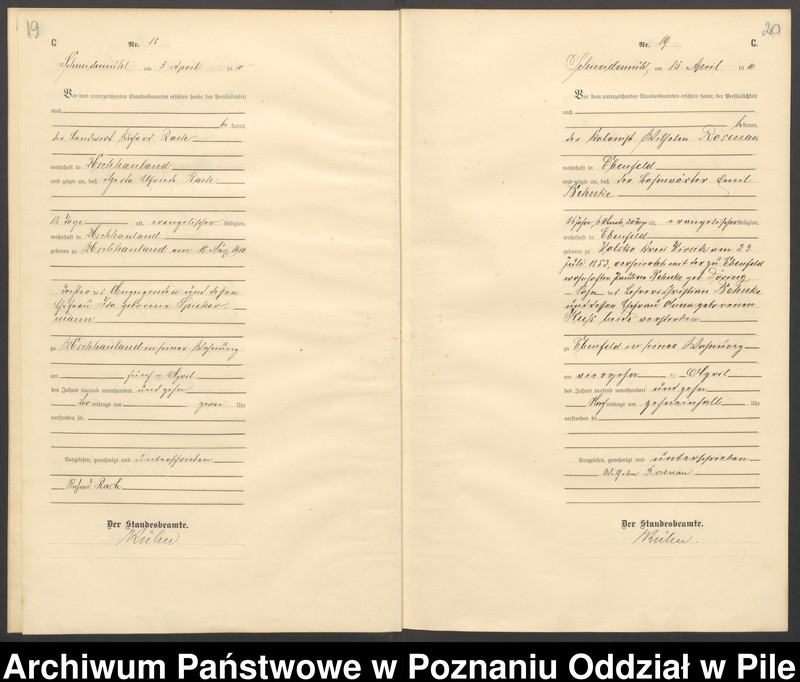 19
C
Nr. 18
Schneidemühl am 5 April 1910
Vor dem unterzeichneten Standesbeamten erschien heute, der Persönlichkeit
nach
bekannt,
der Landwirt Richard Rach
wohnhaft in Uschhauland
und zeigte an, daß Rach
15 Tage alt, evangelischer Religion,
wohnhaft in Uschhauland
geboren zu Uschhauland am
Tochter des Anzeigenden und dessen
Ehefrau Ida geborene
mann
zu Uschhauland in seiner Wohnung
am fünften April
des Jahres tausend neunhundert und zehn
Vormittags um zwei Uhr
verstorben sei.
Vorgelesen, genehmigt und unterschrieben
Richard Rach
Der Standesbeamte.
Kühn
20
Nr. 19
C.
Schneidemühl, am 15 April 1910
Vor dem unterzeichneten Standesbeamten erschien heute, der Persönlichkeit
nach
bekannt,
der Kolonist Wilhelm Rosenau
wohnhaft in Ebenfeld
und zeigte an, daß der Bahnwärter Emil
Behnke
alt, evangelischer Religion,
wohnhaft in Ebenfeld
geboren zu Kreis Wirsitz am 23
Juli 1853, verheiratet mit der zu Ebenfeld
wohnhaften Pauline Behnke geb. Döring
Sohn des Behnke
und dessen Ehefrau geborenen
beide verstorben
zu Ebenfeld in seiner Wohnung
am vierzehnten April
des Jahres tausend neunhundert und zehn
Vormittags um zehneinhalb Uhr
verstorben sei.
Vorgelesen, genehmigt und unterschrieben
Wilhelm Rosenau
Der Standesbeamte.
Kühn.
Archiwum Państwowe w Poznaniu Oddział w Pile